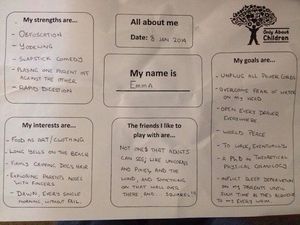 My strengths are...
- OBFUSCATION
- YODELLING
- SLAPSTICK COMEDY
- PLAYING ONE PARENT OFF
AGAINST THE OTHER
- RAPID DIGESTION
All about me
Date: 8 JAN 2014
My name is
EMMA
Only About
Children
My goals are...
- UNPLUG ALL POWER CORDS
- OVERCOME FEAR OF WATER
ON MY HEAD
- OPEN EVERY DRAWER
EVERYWHERE
- WORLD PEACE
- TO WALK, EVENTUALLY
- A PhD IN THEORETICAL
PHYSICAL COSMOLOGY
- INFLICT SLEEP DEPRIVATION
ON MY PARENTS UNTIL
SUCH TIME AS THEY
TO MY EVERY WHIM.
My interests are...
- FOOD AS ART/CLOTHING
- LONG ROLLS ON THE BEACH
- FIRMLY GRIPPING DOG'S HAIR
- EXPLORING PARENTS NOSES
WITH FINGERS
- DAWN, EVERY SINGLE
MORNING WITHOUT FAIL.
The friends I like to
play with are...
NOT ONES THAT ADULTS
CAN SEE, LIKE UNICORNS
AND PIXIES, AND THE
WIND, AND SOMETHING
ON THAT WALL OVER
THERE, AND... SQUIRREL!!!